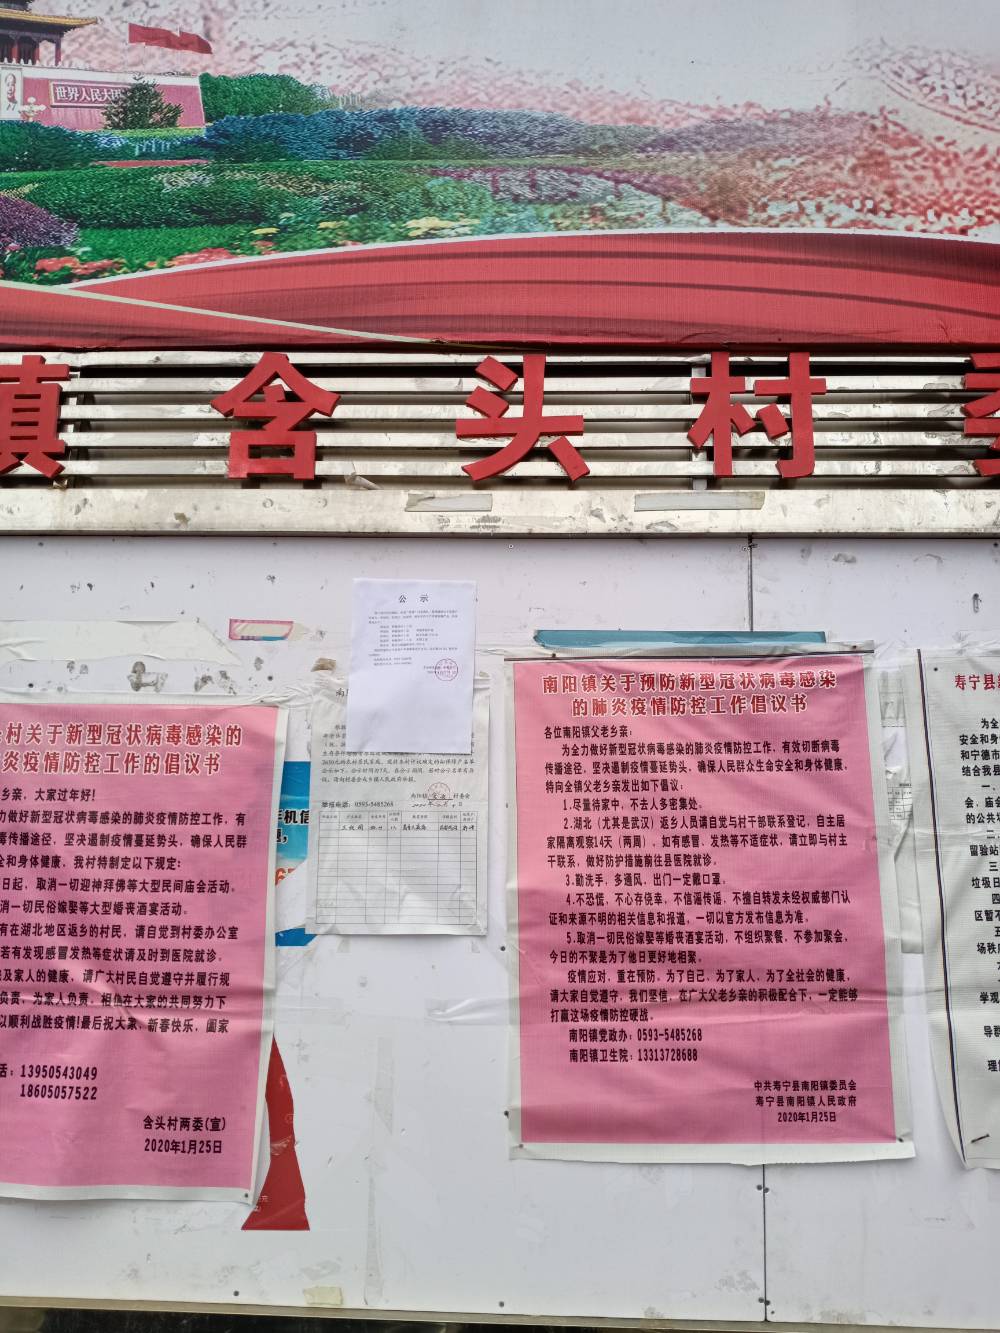 世界人民大团
镇含头村委
公 示
村关于新型冠状病毒感染的
炎疫情防控工作的倡议书
乡亲，大家过年好！
力做好新型冠状病毒感染的肺炎疫情防控工作，有
毒传播途径，坚决遏制疫情蔓延势头，确保人民群
全和身体健康，我村特制定以下规定：
日起，取消一切迎神拜佛等大型民间庙会活动。
消一切民俗嫁娶等大型婚丧酒宴活动。
有在湖北地区返乡的村民，请自觉到村委办公室
若有发现感冒发热等症状请及时到医院就诊。
及家人的健康，请广大村民自觉遵守并履行规
负责，为家人负责，相信在大家的共同努力下
以顺利战胜疫情！最后祝大家，新春快乐，阖家
话：13950543049
18605057522
含头村两委(宣)
2020年1月25日
举报电话：0593-5485268
南阳镇
村委会
南阳镇关于预防新型冠状病毒感染
的肺炎疫情防控工作倡议书
各位南阳镇父老乡亲：
为全力做好新型冠状病毒感染的肺炎疫情防控工作，有效切断病毒
传播途径，坚决遏制疫情蔓延势头，确保人民群众生命安全和身体健康，
特向全镇父老乡亲发出如下倡议：
1.尽量待家中，不去人多密集处。
2.湖北（尤其是武汉）返乡人员请自觉与村干部联系登记，自主居
家隔离观察14天（两周），如有感冒、发热等不适症状，请立即与村主
干联系，做好防护措施前往县医院就诊。
3.勤洗手，多通风，出门一定戴口罩。
4.不恐慌，不心存侥幸，不信谣传谣，不擅自转发未经权威部门认
证和来源不明的相关信息和报道，一切以官方发布信息为准。
5.取消一切民俗嫁娶等婚丧酒宴活动，不组织聚餐，不参加聚会，
今日的不聚是为了他日更好地相聚。
疫情应对，重在预防，为了自己，为了家人，为了全社会的健康，
请大家自觉遵守，我们坚信，在广大父老乡亲的积极配合下，一定能够
打赢这场疫情防控硬战。
南阳镇党政办：0593-5485268
南阳镇卫生院：13313728688
中共寿宁县南阳镇委员会
寿宁县南阳镇人民政府
2020年1月25日
寿宁县
为全
安全和身
和宁德市
结合我县
一、
会、庙会
的公共场
二、
留验站
三
垃圾日
四
区暂不
五
场秩序
学观
导群
理